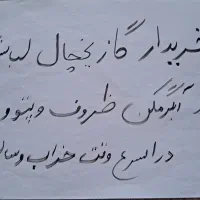 خریدار گاز یخچال لباس
آبگرمکن ظروف و پتو و
در اسرع وقت خراب و سالم